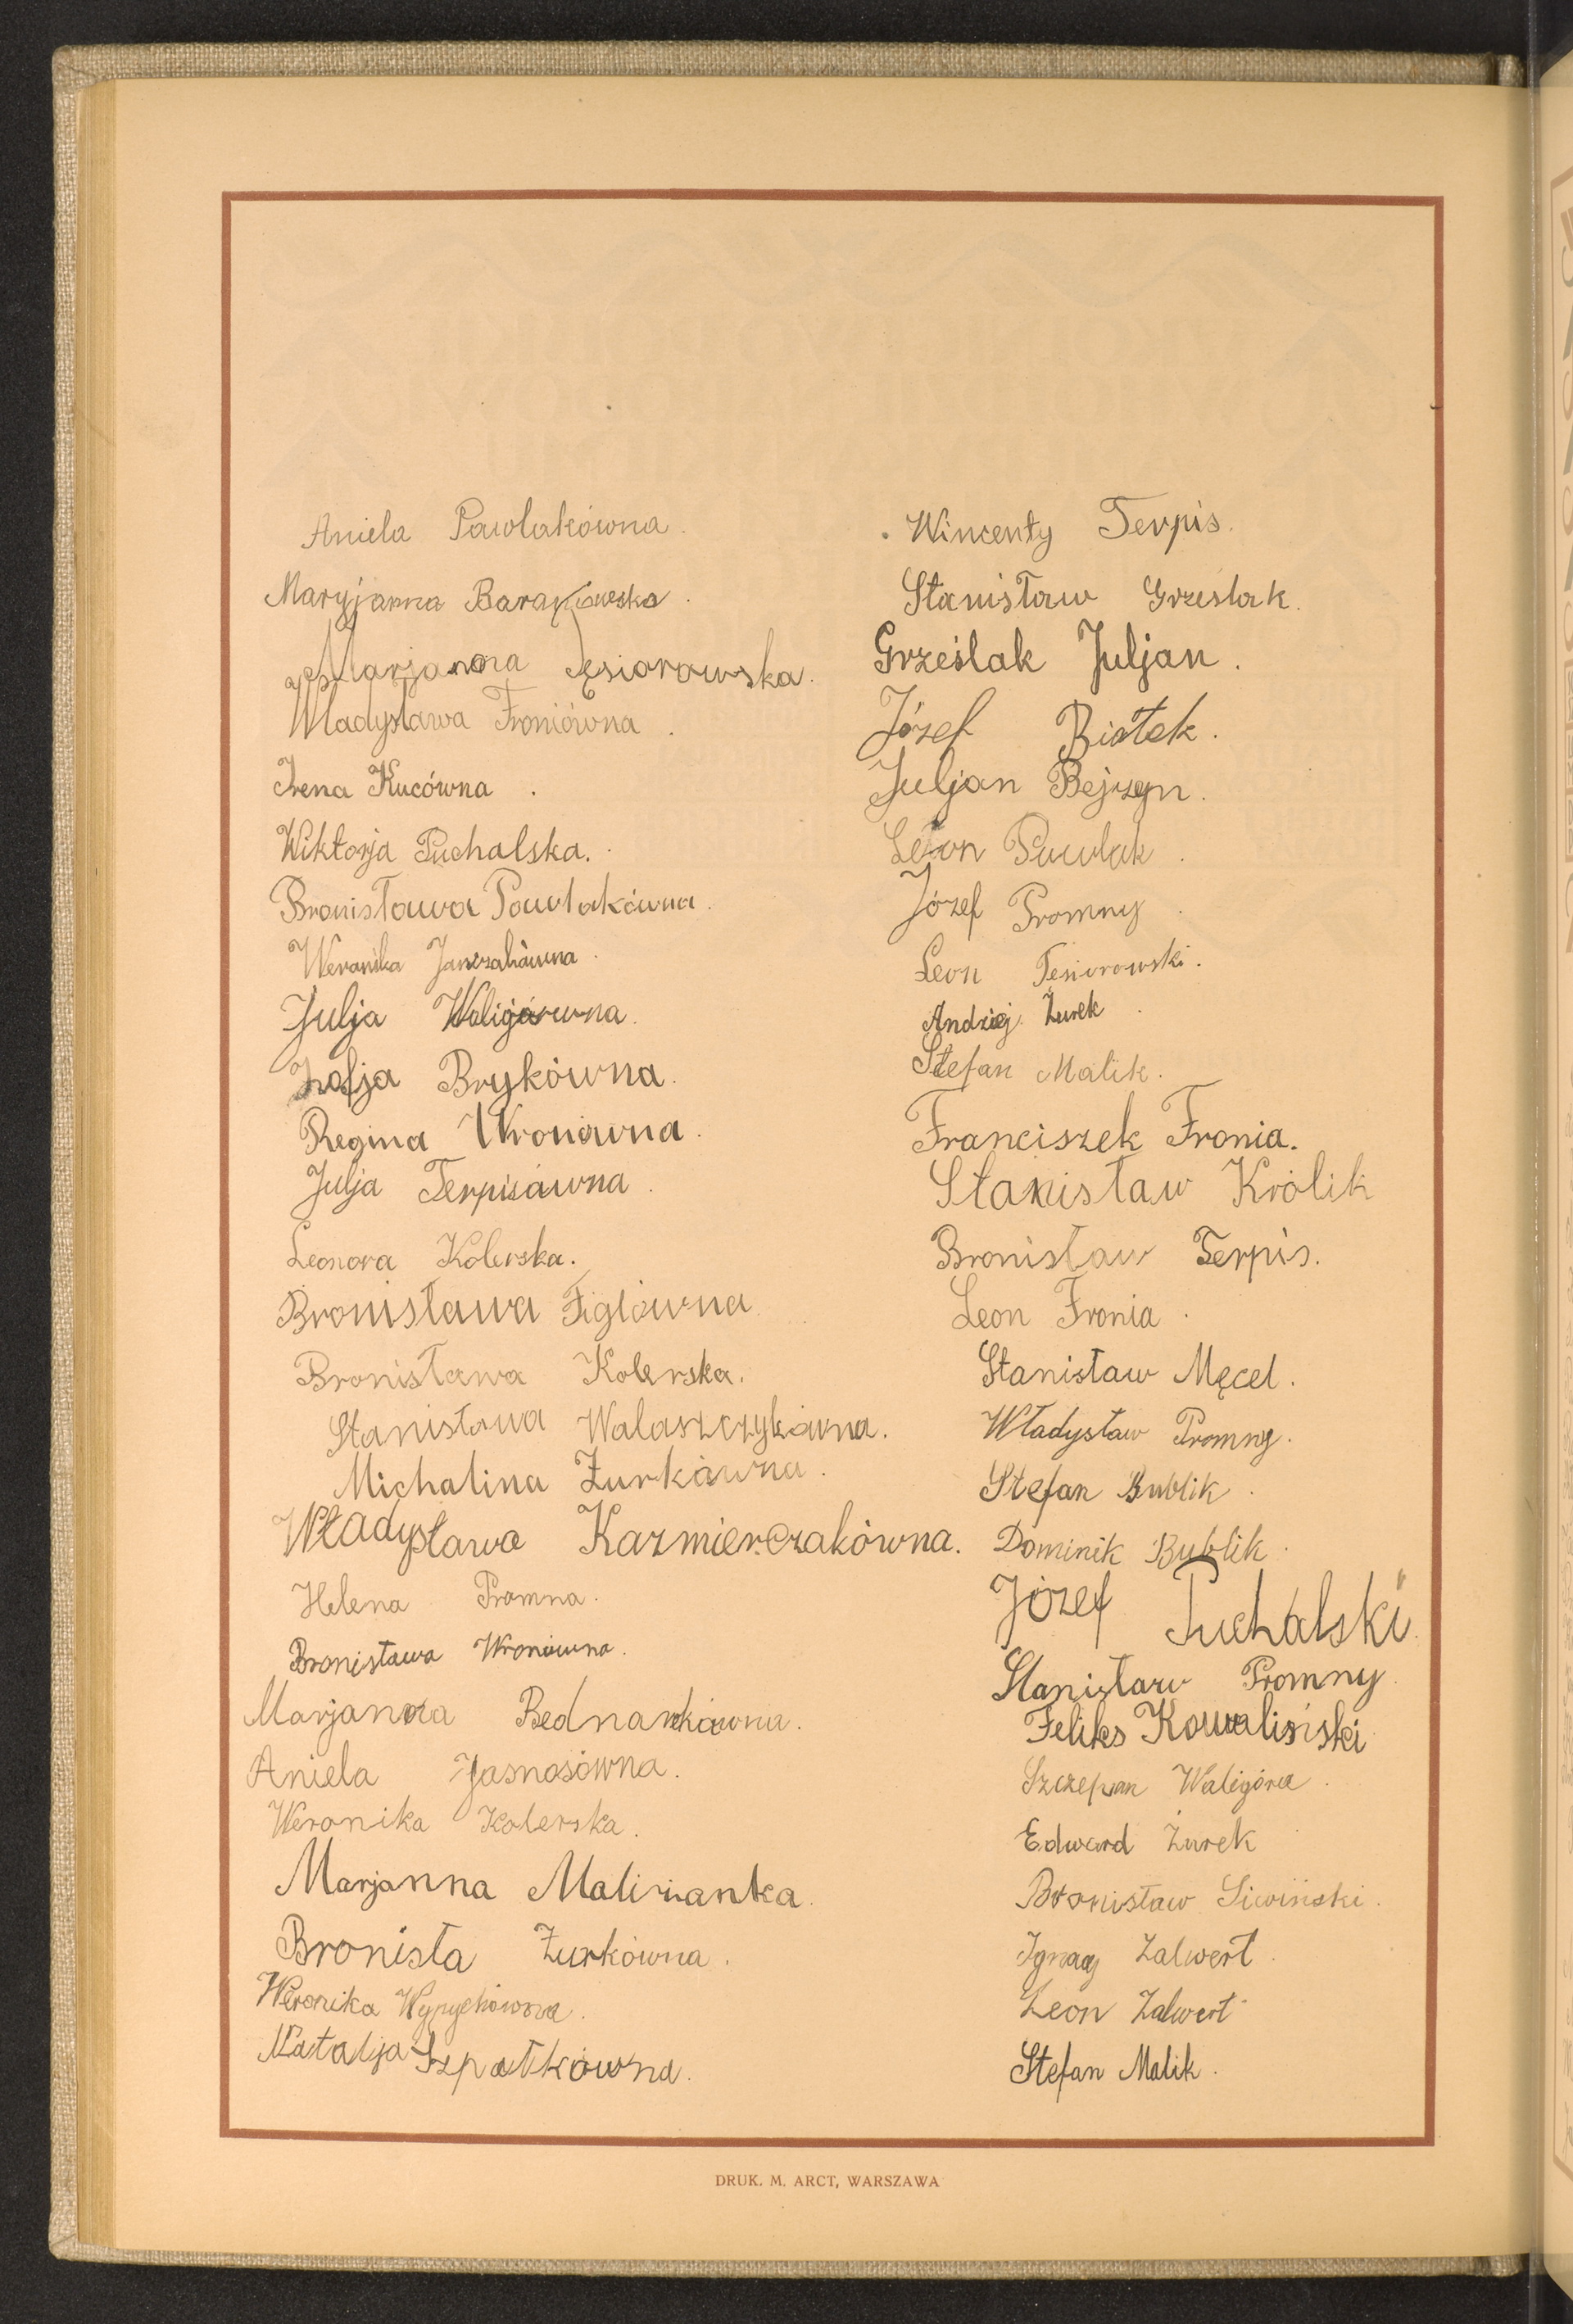 Aniela Pawlakówna.
Maryjanna Barakowska.
Marjanna Tęsiorowska.
Władysława Froniówna.
Irena Kucówna.
Wiktorja Puchalska.
Bronisława Pawlakówna.
Weronika Janczakówna.
Julja Waligórwna.
Zofja Brykówna.
Regina Wronówna.
Julja Terpisówna.
Leonora Kolerska.
Bronisława Figlówna
Bronisława Kolerska.
Stanisława Walaszczykówna.
Michalina Żurkówna.
Władysława Kazmierczakówna.
Helena Promna.
Bronisława Wronówna.
Marjanna Bednarkówna.
Aniela Jasnosówna.
Weronika Kolerska.
Marjanna
Bronisła Żurkówna.
Weronika Wypychówna.
Natalja Szpatkówna.
Wincenty Terpis.
Stanisław Grześlak.
Grześlak Juljan.
Józef Białek.
Juljan Bejrzyn.
Leon Pawlak.
Józef Promny.
Leon Tesiorowski.
Andrzej Żurek.
Stefan Malik.
Franciszek Fronia.
Stanisław Królik
Bronisław Terpis.
Leon Fronia.
Stanisław Męcel.
Władysław Promny.
Stefan Bublik.
Dominik Bublik.
Józef Puchalski.
Stanisław Promny.
Feliks Kowalisiski
Szczepan Waligóra.
Edward Żurek
Bronisław Siwiński.
Ignacy Zalwert.
Leon Zalwert
Stefan Malik.
DRUK. M. ARCT, WARSZAWA